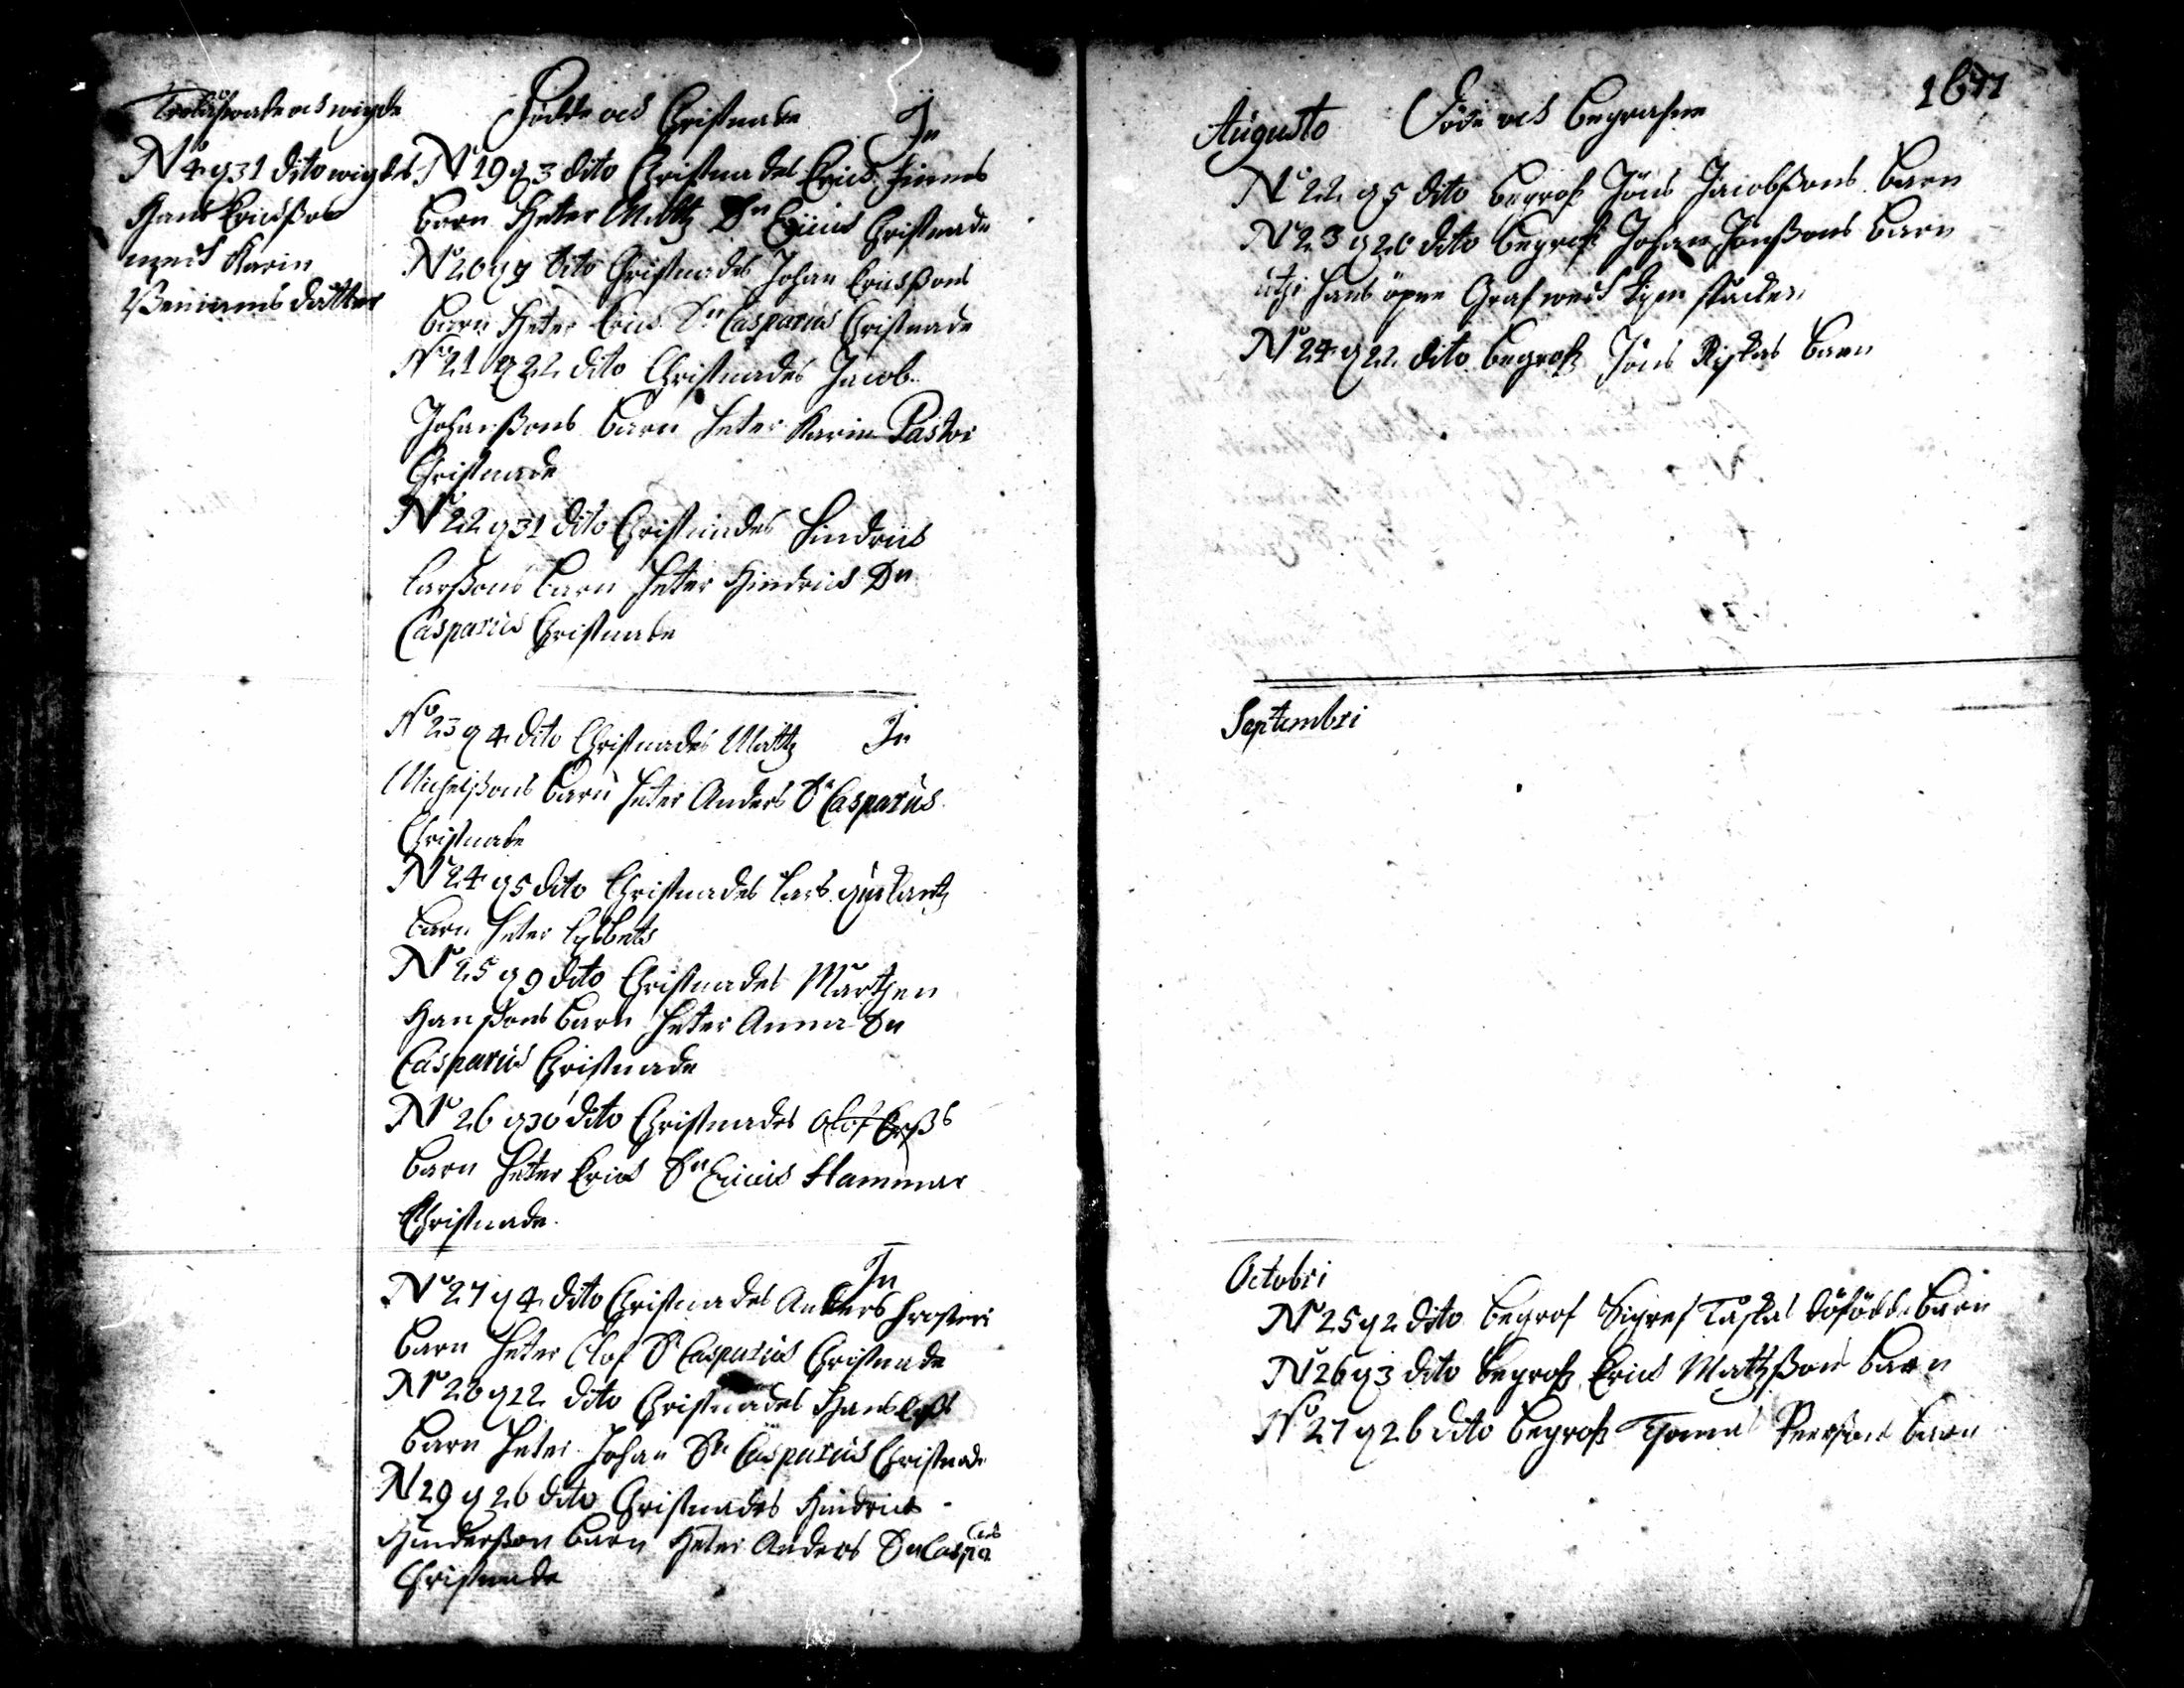 Trolåfwade och wigde
No 4 g 31 dito wigdes
Hans Erichßon
medh Karin
Beniams dotter
Födde och Christnade In
No 19 g 3 dito Christnades Erich
barn Heter Mattz Dn Ericus Christnade
No 20 g 9 dito Christnades Johan Erichßons
barn Heter Erich Dn Casparus Christnade
No 21 g 22 dito Christnades Jacob
Johanßons barn heter Karin Pastor
Christnade
No 22 g 31 dito Christnades Hindrich
Larßons barn heter Hindrich Dn
Casparus Christnade
No 23 g 4 dito Christnades Mattz In
Michelßons barn heter Anders Dn Casparus
Christnade
No 24 g 5 dito Christnades Lars
barn heter Lysbeta
No 25 g 9 dito Christnades Mårthen
Hanßons barn heter Anna Dn
Casparus Christnade
No 26 g 30 dito Christnades Olof
barn heter Erich Dn Ericus Hammar
Christnade
In
No 27 g 4 dito Christnades Anders
barn heter Olof Dn Casparus Christnade
No 28 g 12 dito Christnades Hans
barn heter Johan Dn Casparus Christnade
No 29 g 26 dito Christnades Hindrich
Hinderßon barn heter Anders Dn Casparus
Christnade
Augusto Döde och begrafne 1671
No 22 g 5 dito begrofz Jöns Jacobßons barn
No 23 g 20 dito begrofz Johan Jönßons barn
uthi hans öpne Graf wedh
No 24 g 22 dito begrofz Jöns barn
Septembri
Octobri
No 25 g 2 dito begrof Sigref dödfödde barn
No 26 g 3 dito begrofz Erich Matzßons barn
No 27 g 26 dito begrofz Thomas Peersons barn